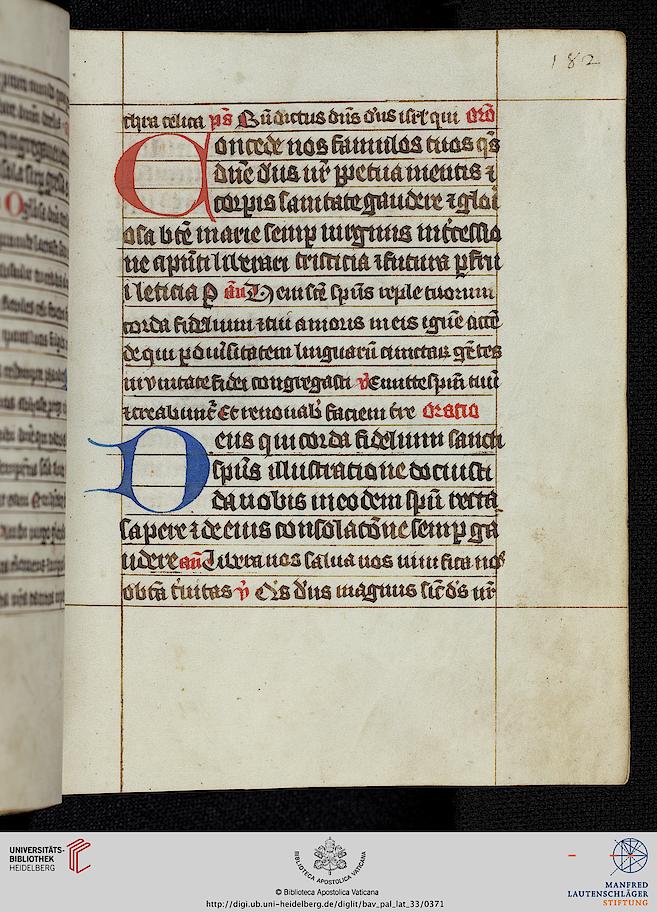 182
thra celica ps Bn̄dictus dn̄s d'us isrl' qui Orō
Concede nos famulos tuos q̄s
dn̄e d'us nr̄ ꝑpetua mentis ⁊
corꝑis sanitate gaudere ⁊ gloi
osa btē marie semꝑ virginis int̄cessio
ne a pn̄ti liberari tristicia ⁊ futura ꝑfru
i leticia ꝑ an̄ Veni sc̄e sp̄us reple tuorum
corda fidelium ⁊ tui amoris in eis igne acce
de qui ꝑ diu'sitatem linguarū cunctaꝝ gētes
in vnitate fidei congregasti v̄ Emitte spm̄ tuū
⁊ creabunt' Et renouab' faciem t're Oratio
Deus qui corda fidelium sancti
sp̄us illustratione docuisti
da nobis in eodem spū recta
sapere ⁊ de eius consolatōne semꝑ ga
udere an̄ Libera nos salua nos iustifica nos
o btā t'nitas v̄ Ds d'us magnus sic̄ ds nr̄
UNIVERSITÄTS-
BIBLIOTHEK
HEIDELBERG
BIBLIOTECA APOSTOLICA VATICANA
© Biblioteca Apostolica Vaticana
http://digi.ub.uni-heidelberg.de/diglit/bav_pal_lat_33/0371
MANFRED
LAUTENSCHLÄGER
STIFTUNG